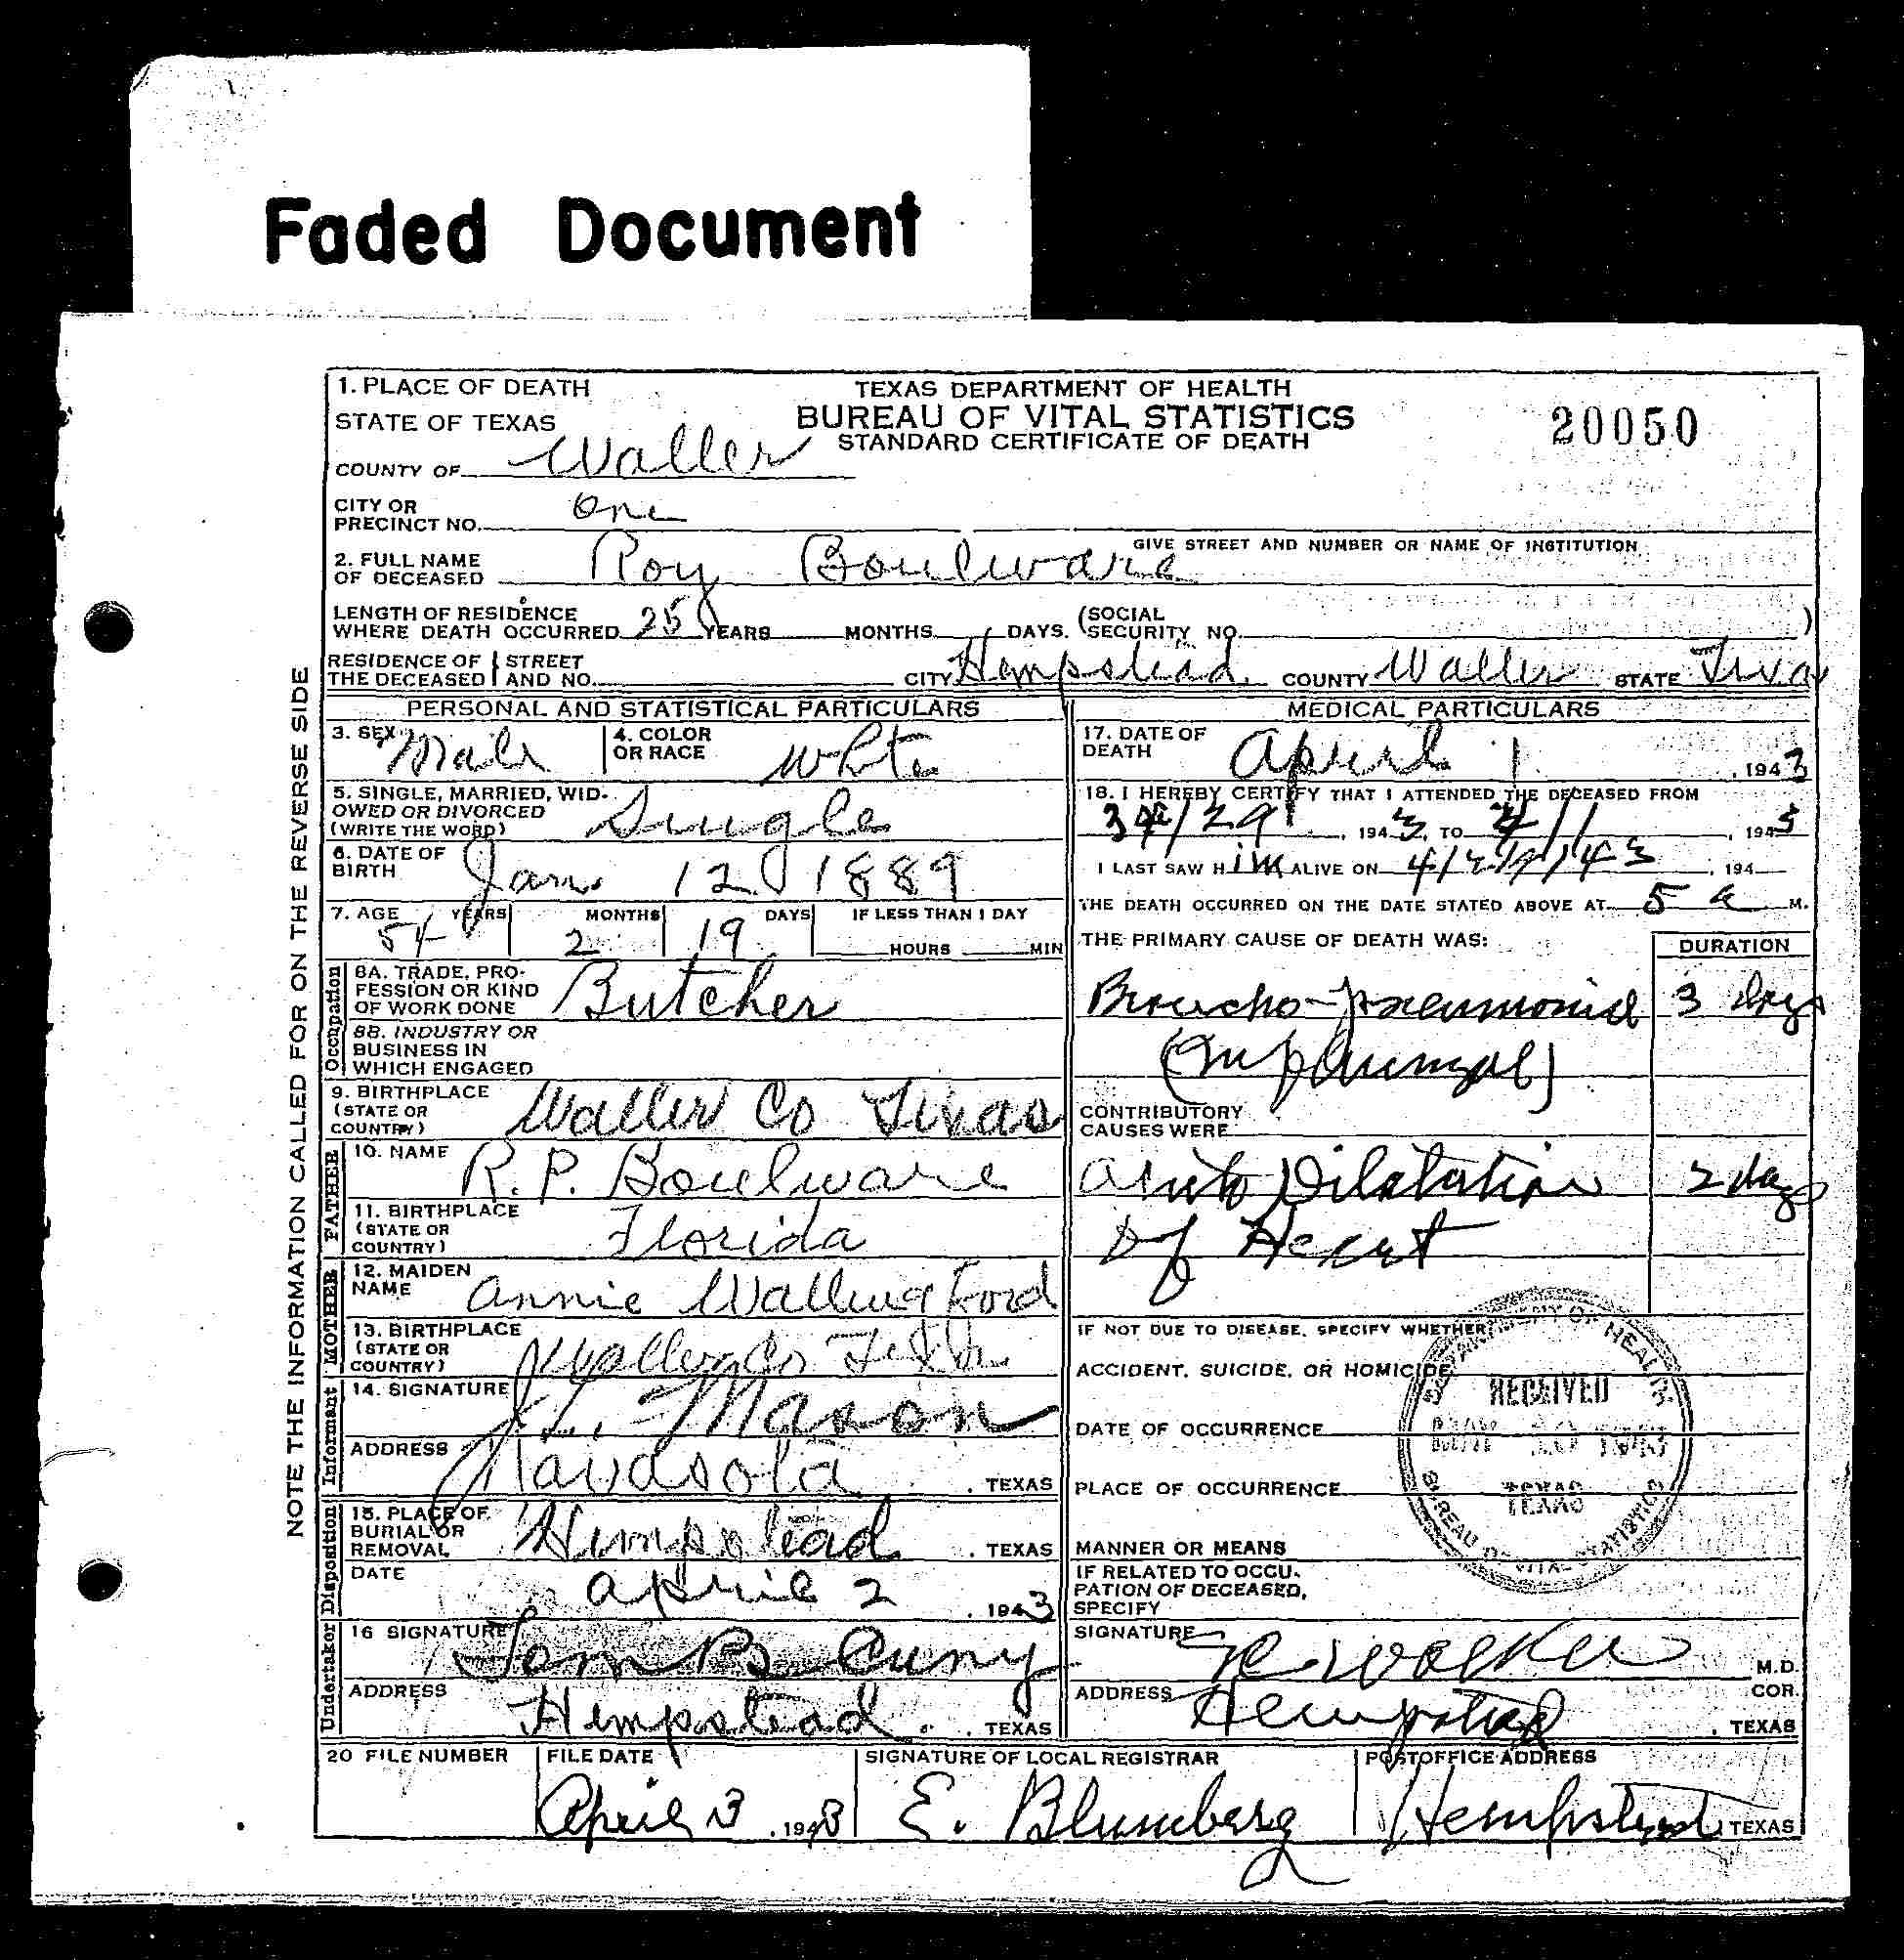 Faded Document
1. PLACE OF DEATH
STATE OF TEXAS
COUNTY OF Waller
TEXAS DEPARTMENT OF HEALTH
BUREAU OF VITAL STATISTICS
STANDARD CERTIFICATE OF DEATH
20050
CITY OR
PRECINCT NO. One
GIVE STREET AND NUMBER OR NAME OF INSTITUTION
2. FULL NAME
OF DECEASED Roy Boulware
LENGTH OF RESIDENCE
WHERE DEATH OCCURRED 25 YEARS MONTHS DAYS. (SOCIAL
SECURITY NO. )
RESIDENCE OF THE DECEASED STREET AND NO. CITY Hempstead COUNTY Waller STATE Texas
NOTE THE INFORMATION CALLED FOR ON THE REVERSE SIDE
PERSONAL AND STATISTICAL PARTICULARS
3. SEX Male 4. COLOR OR RACE White
5. SINGLE, MARRIED, WID-
OWED OR DIVORCED
(WRITE THE WORD) Single
6. DATE OF
BIRTH Jan 12 1889
7. AGE YEARS MONTHS DAYS IF LESS THAN 1 DAY
54 2 19 HOURS MIN
Occupation
8A. TRADE, PRO-
FESSION OR KIND
OF WORK DONE Butcher
8B. INDUSTRY OR
BUSINESS IN
WHICH ENGAGED
9. BIRTHPLACE
(STATE OR
COUNTRY) Waller Co Texas
FATHER
10. NAME R. P. Boulware
11. BIRTHPLACE
(STATE OR
COUNTRY) Florida
MOTHER
12. MAIDEN
NAME Annie Wallingford
13. BIRTHPLACE
(STATE OR
COUNTRY) Waller Co
Informant
14. SIGNATURE Mason
ADDRESS Navasota . TEXAS
Disposition
15. PLACE OF
BURIAL OR
REMOVAL Hempstead . TEXAS
DATE April 2 . 1943
Undertaker
16 SIGNATURE Tom B. Cuny
ADDRESS Hempstead . TEXAS
MEDICAL PARTICULARS
17. DATE OF
DEATH April 1 , 1943
18. I HEREBY CERTIFY THAT I ATTENDED THE DECEASED FROM
29 , 1943, TO 4/1 , 194
I LAST SAW H im ALIVE ON , 194
THE DEATH OCCURRED ON THE DATE STATED ABOVE AT 5 a M.
THE PRIMARY CAUSE OF DEATH WAS: DURATION
Broncho-pneumonia 3 days
CONTRIBUTORY
CAUSES WERE
Dilatation 2 days
of Heart
IF NOT DUE TO DISEASE, SPECIFY WHETHER
ACCIDENT, SUICIDE, OR HOMICIDE
DATE OF OCCURRENCE
PLACE OF OCCURRENCE
MANNER OR MEANS
IF RELATED TO OCCU-
PATION OF DECEASED,
SPECIFY
OF HEALTH
RECEIVED
1943
TEXAS
BUREAU OF VITAL STATISTICS
SIGNATURE Walker M.D.
COR.
ADDRESS Hempstead . TEXAS
20 FILE NUMBER FILE DATE SIGNATURE OF LOCAL REGISTRAR POSTOFFICE ADDRESS
April 3 . 1943 E. Blumberg Hempstead TEXAS